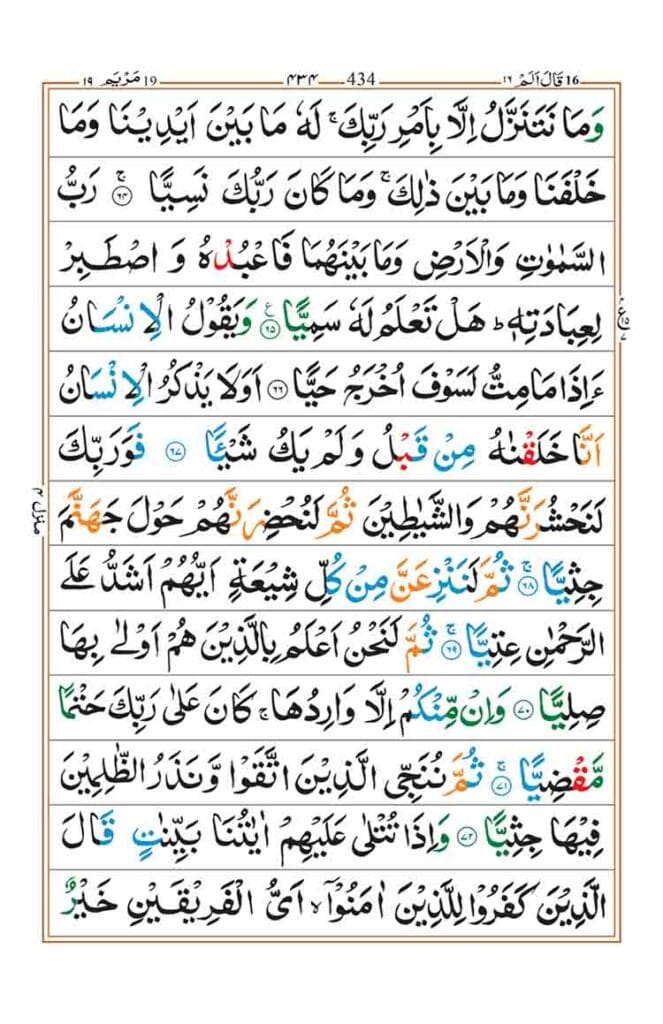 ١٩ مَرْيَم 19 ٤٣٤ 434 ١٦ قَالَ اَلَمْ 16
وَمَا نَتَنَزَّلُ اِلَّا بِاَمْرِ رَبِّكَ ۚ لَهٗ مَا بَيْنَ اَيْدِيْنَا وَمَا
خَلْفَنَا وَمَا بَيْنَ ذٰلِكَ ۚ وَمَا كَانَ رَبُّكَ نَسِيًّا ۚ ﴿۶۴﴾ رَبُّ
السَّمٰوٰتِ وَالْاَرْضِ وَمَا بَيْنَهُمَا فَاعْبُدْهُ وَ اصْطَبِرْ
لِعِبَادَتِهٖ ؕ هَلْ تَعْلَمُ لَهٗ سَمِيًّا ﴿۶۵﴾ وَيَقُوْلُ الْاِنْسَانُ
ءَاِذَا مَا مِتُّ لَسَوْفَ اُخْرَجُ حَيًّا ﴿۶۶﴾ اَوَلَا يَذْكُرُ الْاِنْسَانُ
اَنَّا خَلَقْنٰهُ مِنْ قَبْلُ وَلَمْ يَكُ شَيْـًٔا ﴿۶۷﴾ فَوَرَبِّكَ
لَنَحْشُرَنَّهُمْ وَالشَّيٰطِيْنَ ثُمَّ لَنُحْضِرَنَّهُمْ حَوْلَ جَهَنَّمَ
جِثِيًّا ۚ ﴿۶۸﴾ ثُمَّ لَنَنْزِعَنَّ مِنْ كُلِّ شِيْعَةٍ اَيُّهُمْ اَشَدُّ عَلَى
الرَّحْمٰنِ عِتِيًّا ۚ ﴿۶۹﴾ ثُمَّ لَنَحْنُ اَعْلَمُ بِالَّذِيْنَ هُمْ اَوْلٰى بِهَا
صِلِيًّا ﴿۷۰﴾ وَاِنْ مِّنْكُمْ اِلَّا وَارِدُهَا ۚ كَانَ عَلٰى رَبِّكَ حَتْمًا
مَّقْضِيًّا ۚ ﴿۷۱﴾ ثُمَّ نُنَجِّى الَّذِيْنَ اتَّقَوْا وَّنَذَرُ الظّٰلِمِيْنَ
فِيْهَا جِثِيًّا ﴿۷۲﴾ وَاِذَا تُتْلٰى عَلَيْهِمْ اٰيٰتُنَا بَيِّنٰتٍ قَالَ
الَّذِيْنَ كَفَرُوْا لِلَّذِيْنَ اٰمَنُوْۤا ۙ اَىُّ الْفَرِيْقَيْنِ خَيْرٌ
منزل ۴